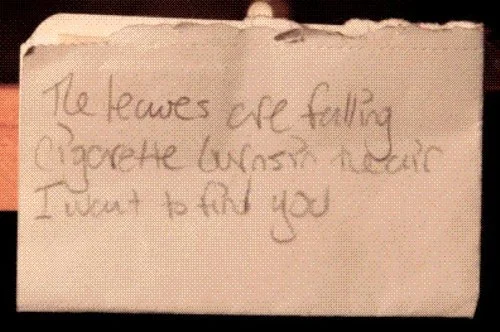 The leaves are falling
Cigarette burns in the air
I want to find you